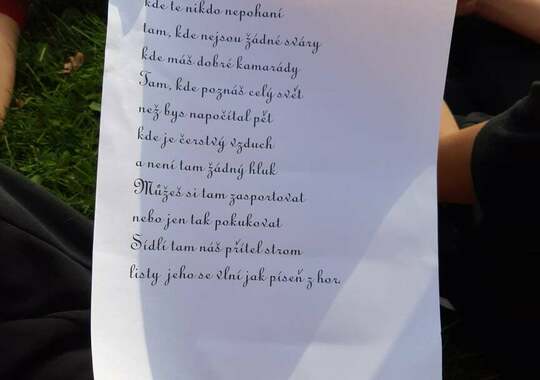 kde te nikdo nepohaní
tam, kde nejsou žádné sváry
kde máš dobré kamarády
Tam, kde poznáš celý svět
než bys napočítal pět
kde je čerstvý vzduch
a není tam žádný hluk
Můžeš si tam zasportovat
nebo jen tak pokukovat
Sídlí tam náš přítel strom
listy jeho se vlní jak píseň z hor.